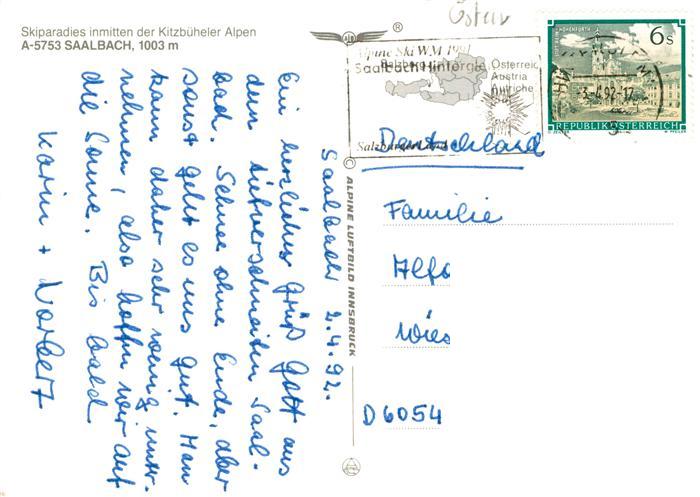 Skiparadies inmitten der Kitzbüheler Alpen
A-5753 SAALBACH, 1003 m
®
Alpine Ski WM 1991
Saalbach Hintergle
Salzburg
Österreic
Austria
Autriche
Salzburger
STIFT REIN-HOHENFURTH
6s
REPUBLIK ÖSTERREICH
-3.-4.92-17
Deutschland
Familie
Alfo
Wies
D 6054
© ALPINE LUFTBILD INNSBRUCK
Saalbach 2.4.92.
Ein herzliches Grüß Gott aus
dem tiefverschneiten Saal-
bach. Schnee ohne Ende, aber
sonst geht es uns gut. Man
kann daher sehr wenig unter-
nehmen, also hoffen wir auf
die Sonne. Bis bald
Karin + Norbert